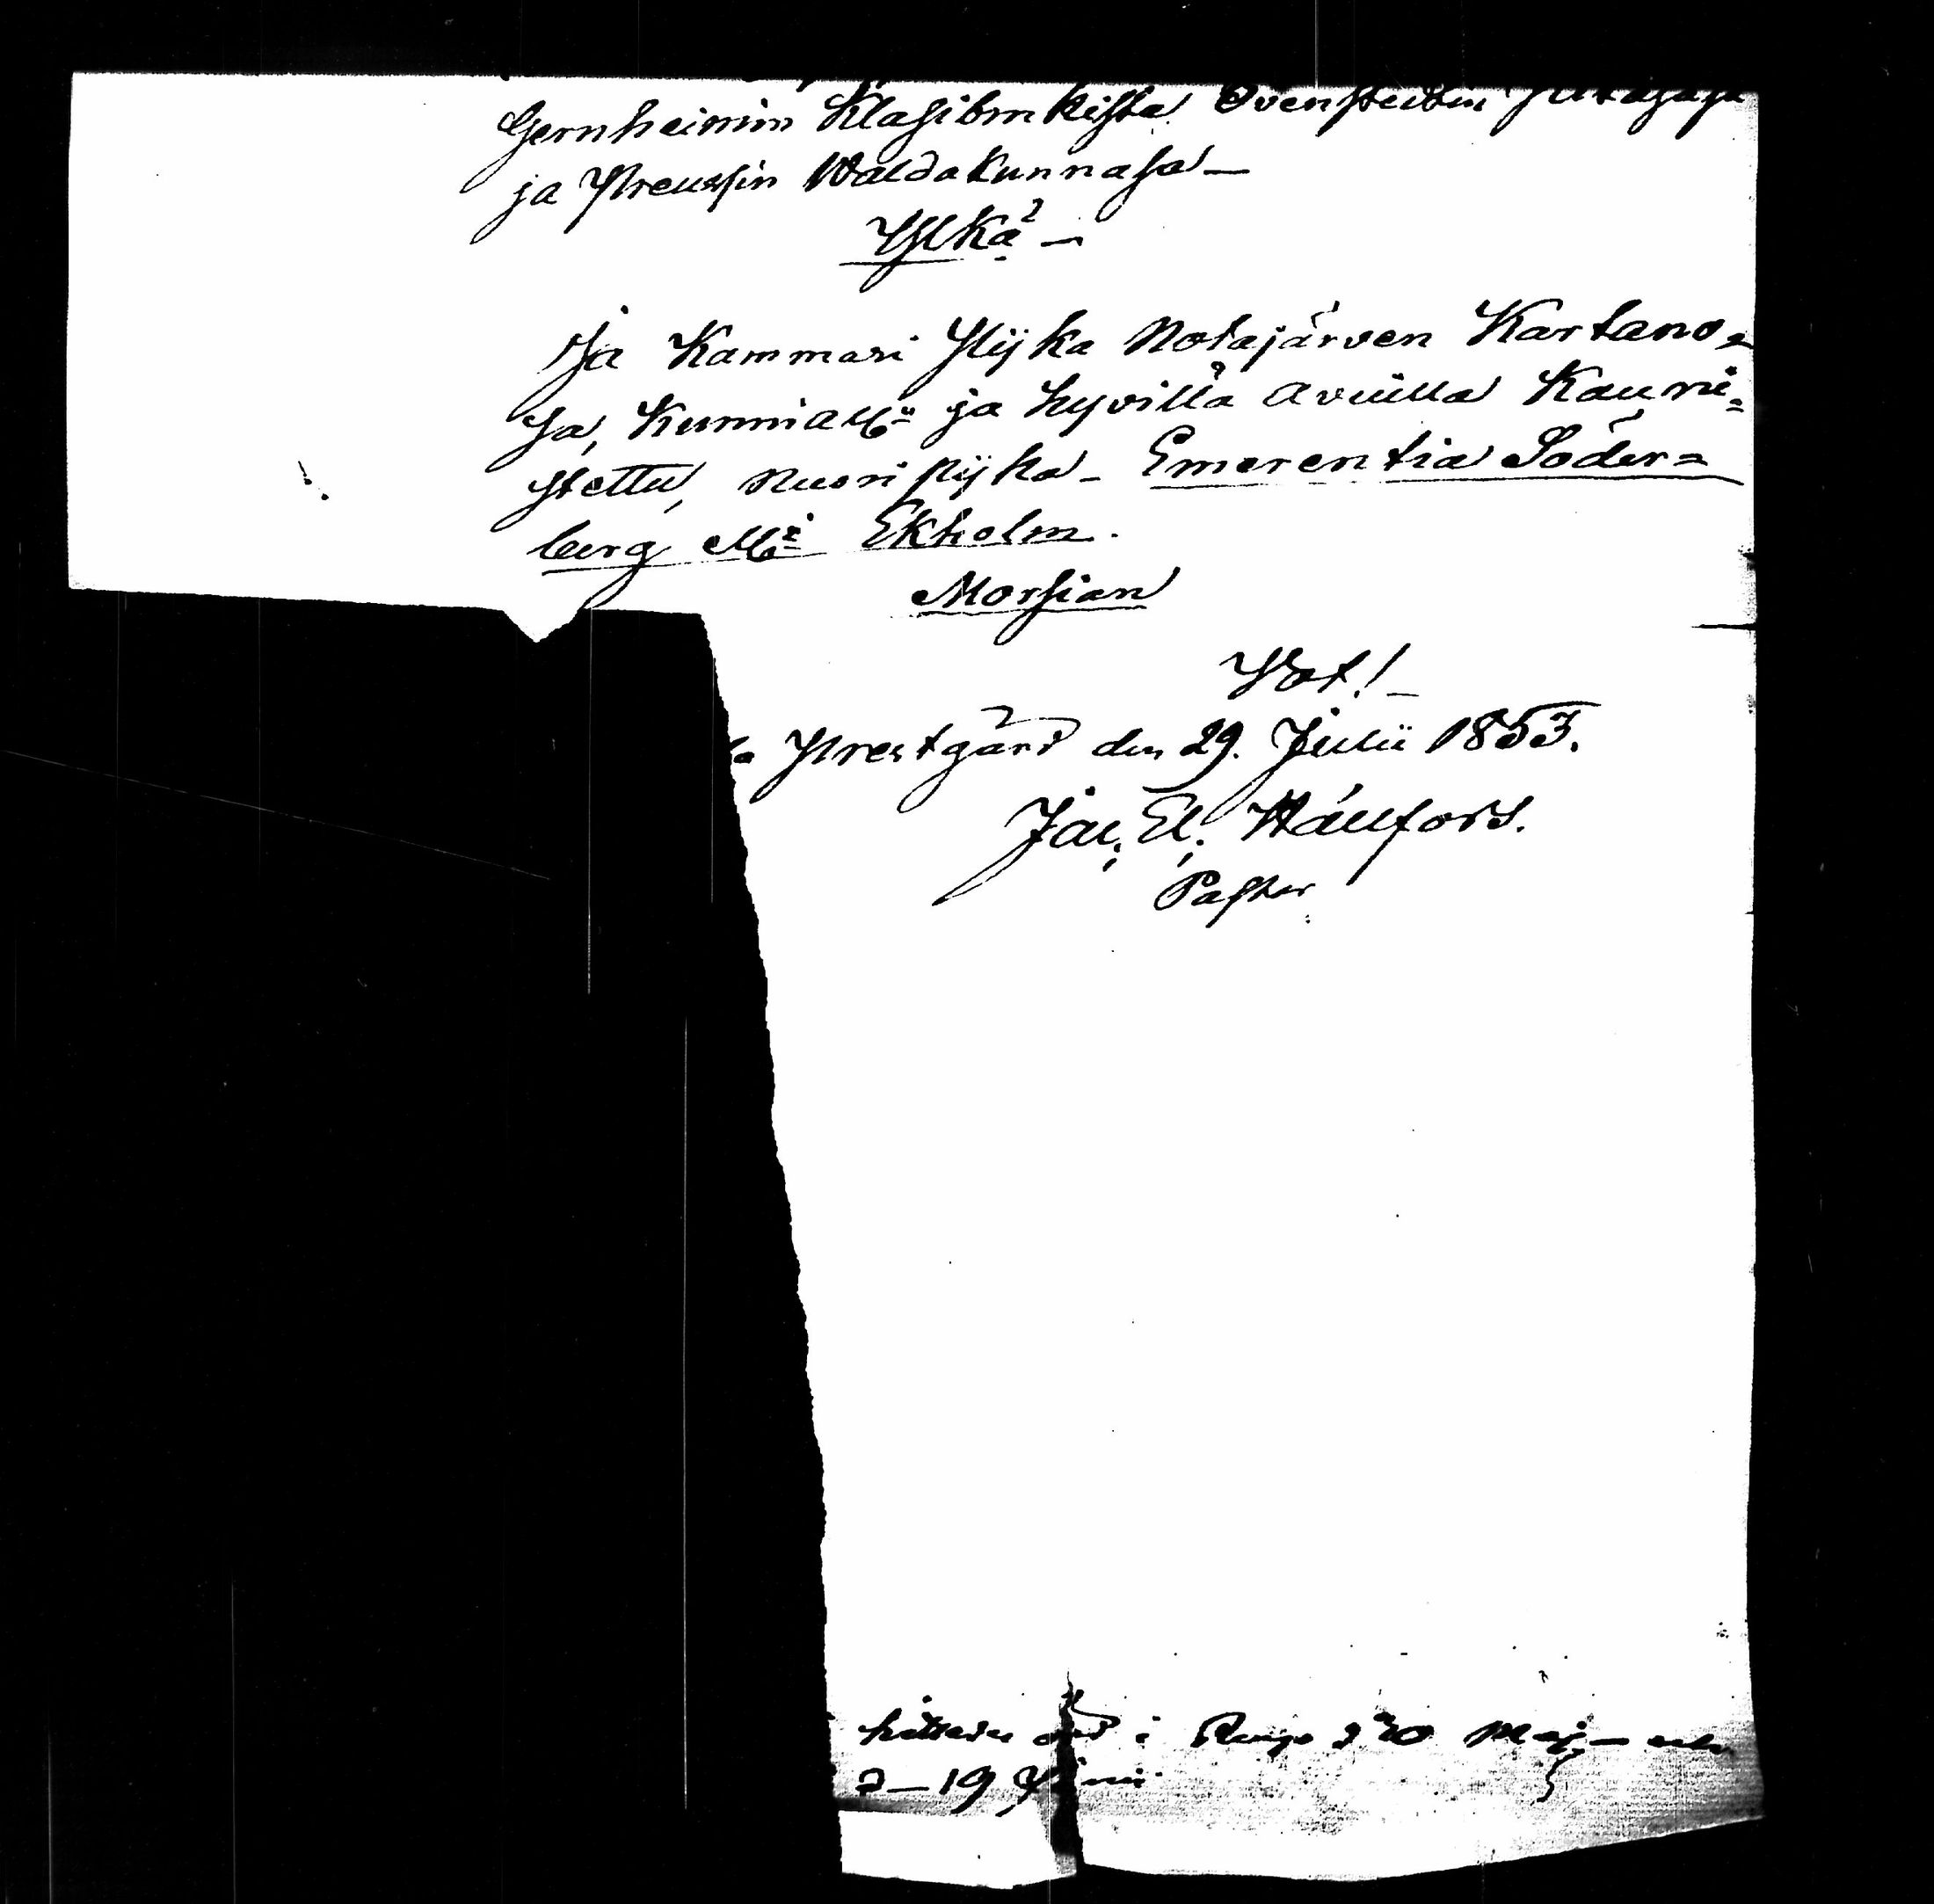 Gernheimin Klasibrukista Ovenstedin
ja Preussin Waldakunnasa —
Ylkä —
Ja Kammari Pijka Notsjärven Kartano=
sa, Kunnialla ja hyvillä avuilla Kauni=
stettu, nuori pijka - Emerentia Söder=
berg eller Ekholm.
Morsian
Prestgård den 29. Julii 1853.
Jac. El. Wallfors.
Pastor
i Maj — och
2 — 19 Juni